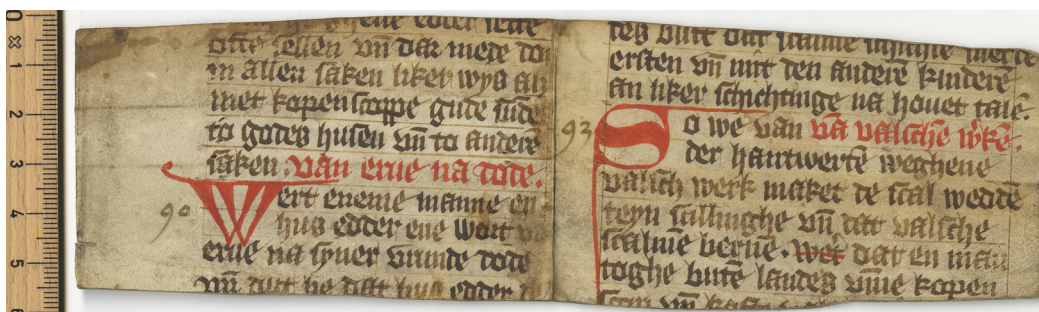 eue edder sette
ofte sellen vn̄ dar mede don
in allen saken liker wys als
met kopenscoppe gude sunder
to godes husen vn̄ to anderē
saken. van erue na dode.
90
Wert eneme manne en
hus edder ene wort
erue na syner vrunde dode
vn̄ dut he dat hus edder
ersten vn̄ mit den anderē kinderē
an liker schichtinge na houet talē.
93
So we van vā valschē w̄kē.
der hantwertē weghene
valsch werk maket de scal weddē
teyn scillinghe vn̄ dat valsche
scalmē bernē. wet dat en man
toghe butē landes vm̄e kopen